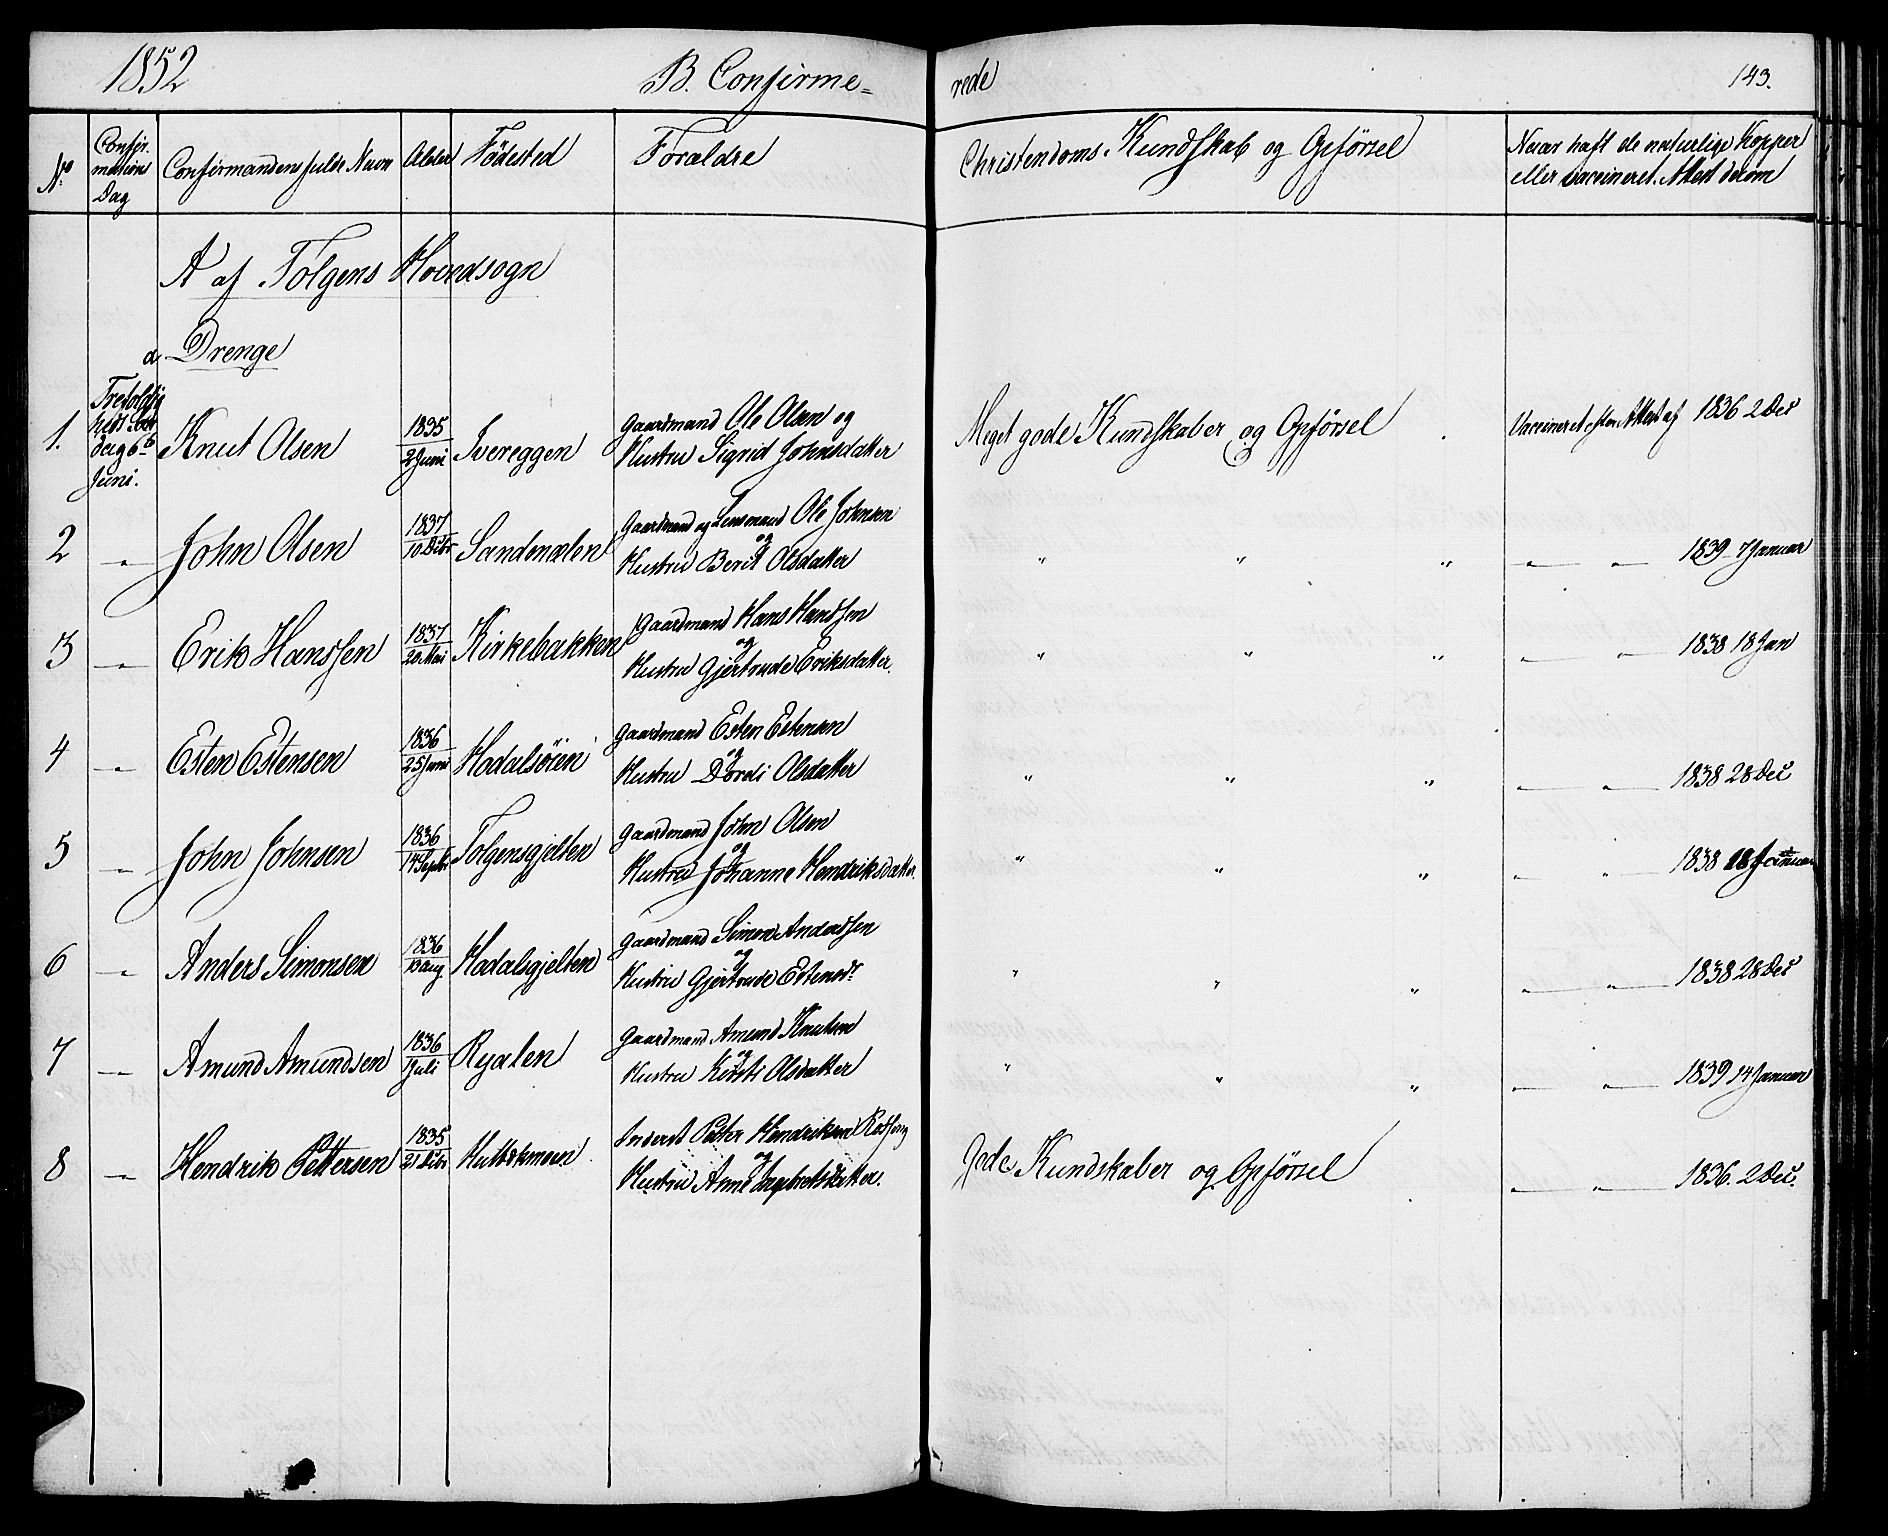 1852 B. Confirme= rede 143.
No Confir- mations Dag Confirmandens fulde Navn Alder Födested Forældre Christendoms Kundskab og Opförsel Naar haft de naturlige Kopper eller vaccineret. Attest derom
A af Tolgens Hovedsogn
a Drenge
1. Trefoldig heds Søn dag 6te Juni. Knut Olsen 1835 2 Juni Gaardmand Ole Olsen og Hustru Sigrid Johnsdatter Meget gode Kundskaber og Opförsel . Vaccineret efter Attest af 1836 2 Dec
2 " John Olsen 1837 10 Dcbr Gaardmand og Lensmand Ole Johnsen og Hustru Berit Olsdatter " " " " " 1839 7 Januar
3 " Erik Hanssen 1837 20 Mai Kirkebakken Gaardmand Hans Hanssen og Hustru Gjertrude Eriksdatter. " " " " " 1838 18 Jan
4 " Esten Estensen 1836 25 Juni Hodalsöien Gaardmand Esten Estensen og Hustru Dordi Olsdatter " " " " " 1838 28 Dec
5 " John Johnsen 1836 14 Septr Tolgensgjelten Gaardmand John Olsen og Hustru Johanne Hendriksdatter. " " " " " 1838 18 Januar
6 " Anders Simonsen 1836 Aug. Hodalsgjelten Gaardmand Simon Anderssen og Hustru Gjertrude Estensdr " " " " " 1838 28 Dec
7 " Amund Amundsen 1836 Juli Gaardmand Amund Knutsen og Hustru Kirsti Olsdatter " " " " " 1839 14 Januar
8 " Hendrik Pettersen 1835 21 Dcbr Inderst Petter Hendriksen og Hustru Anne Ingebretsdatter. Gode Kundskaber og Opförsel . " " 1836. 2 Dec.